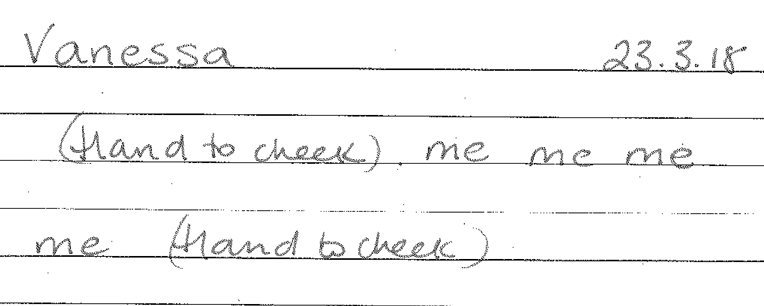 Vanessa 23.3.18
(Hand to cheek). me me me
me (Hand to cheek)